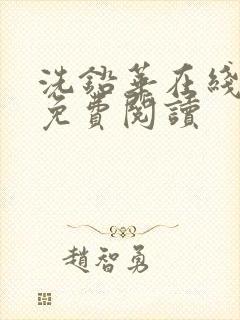 洗鉛華在綫
免費閱讀
趙智勇